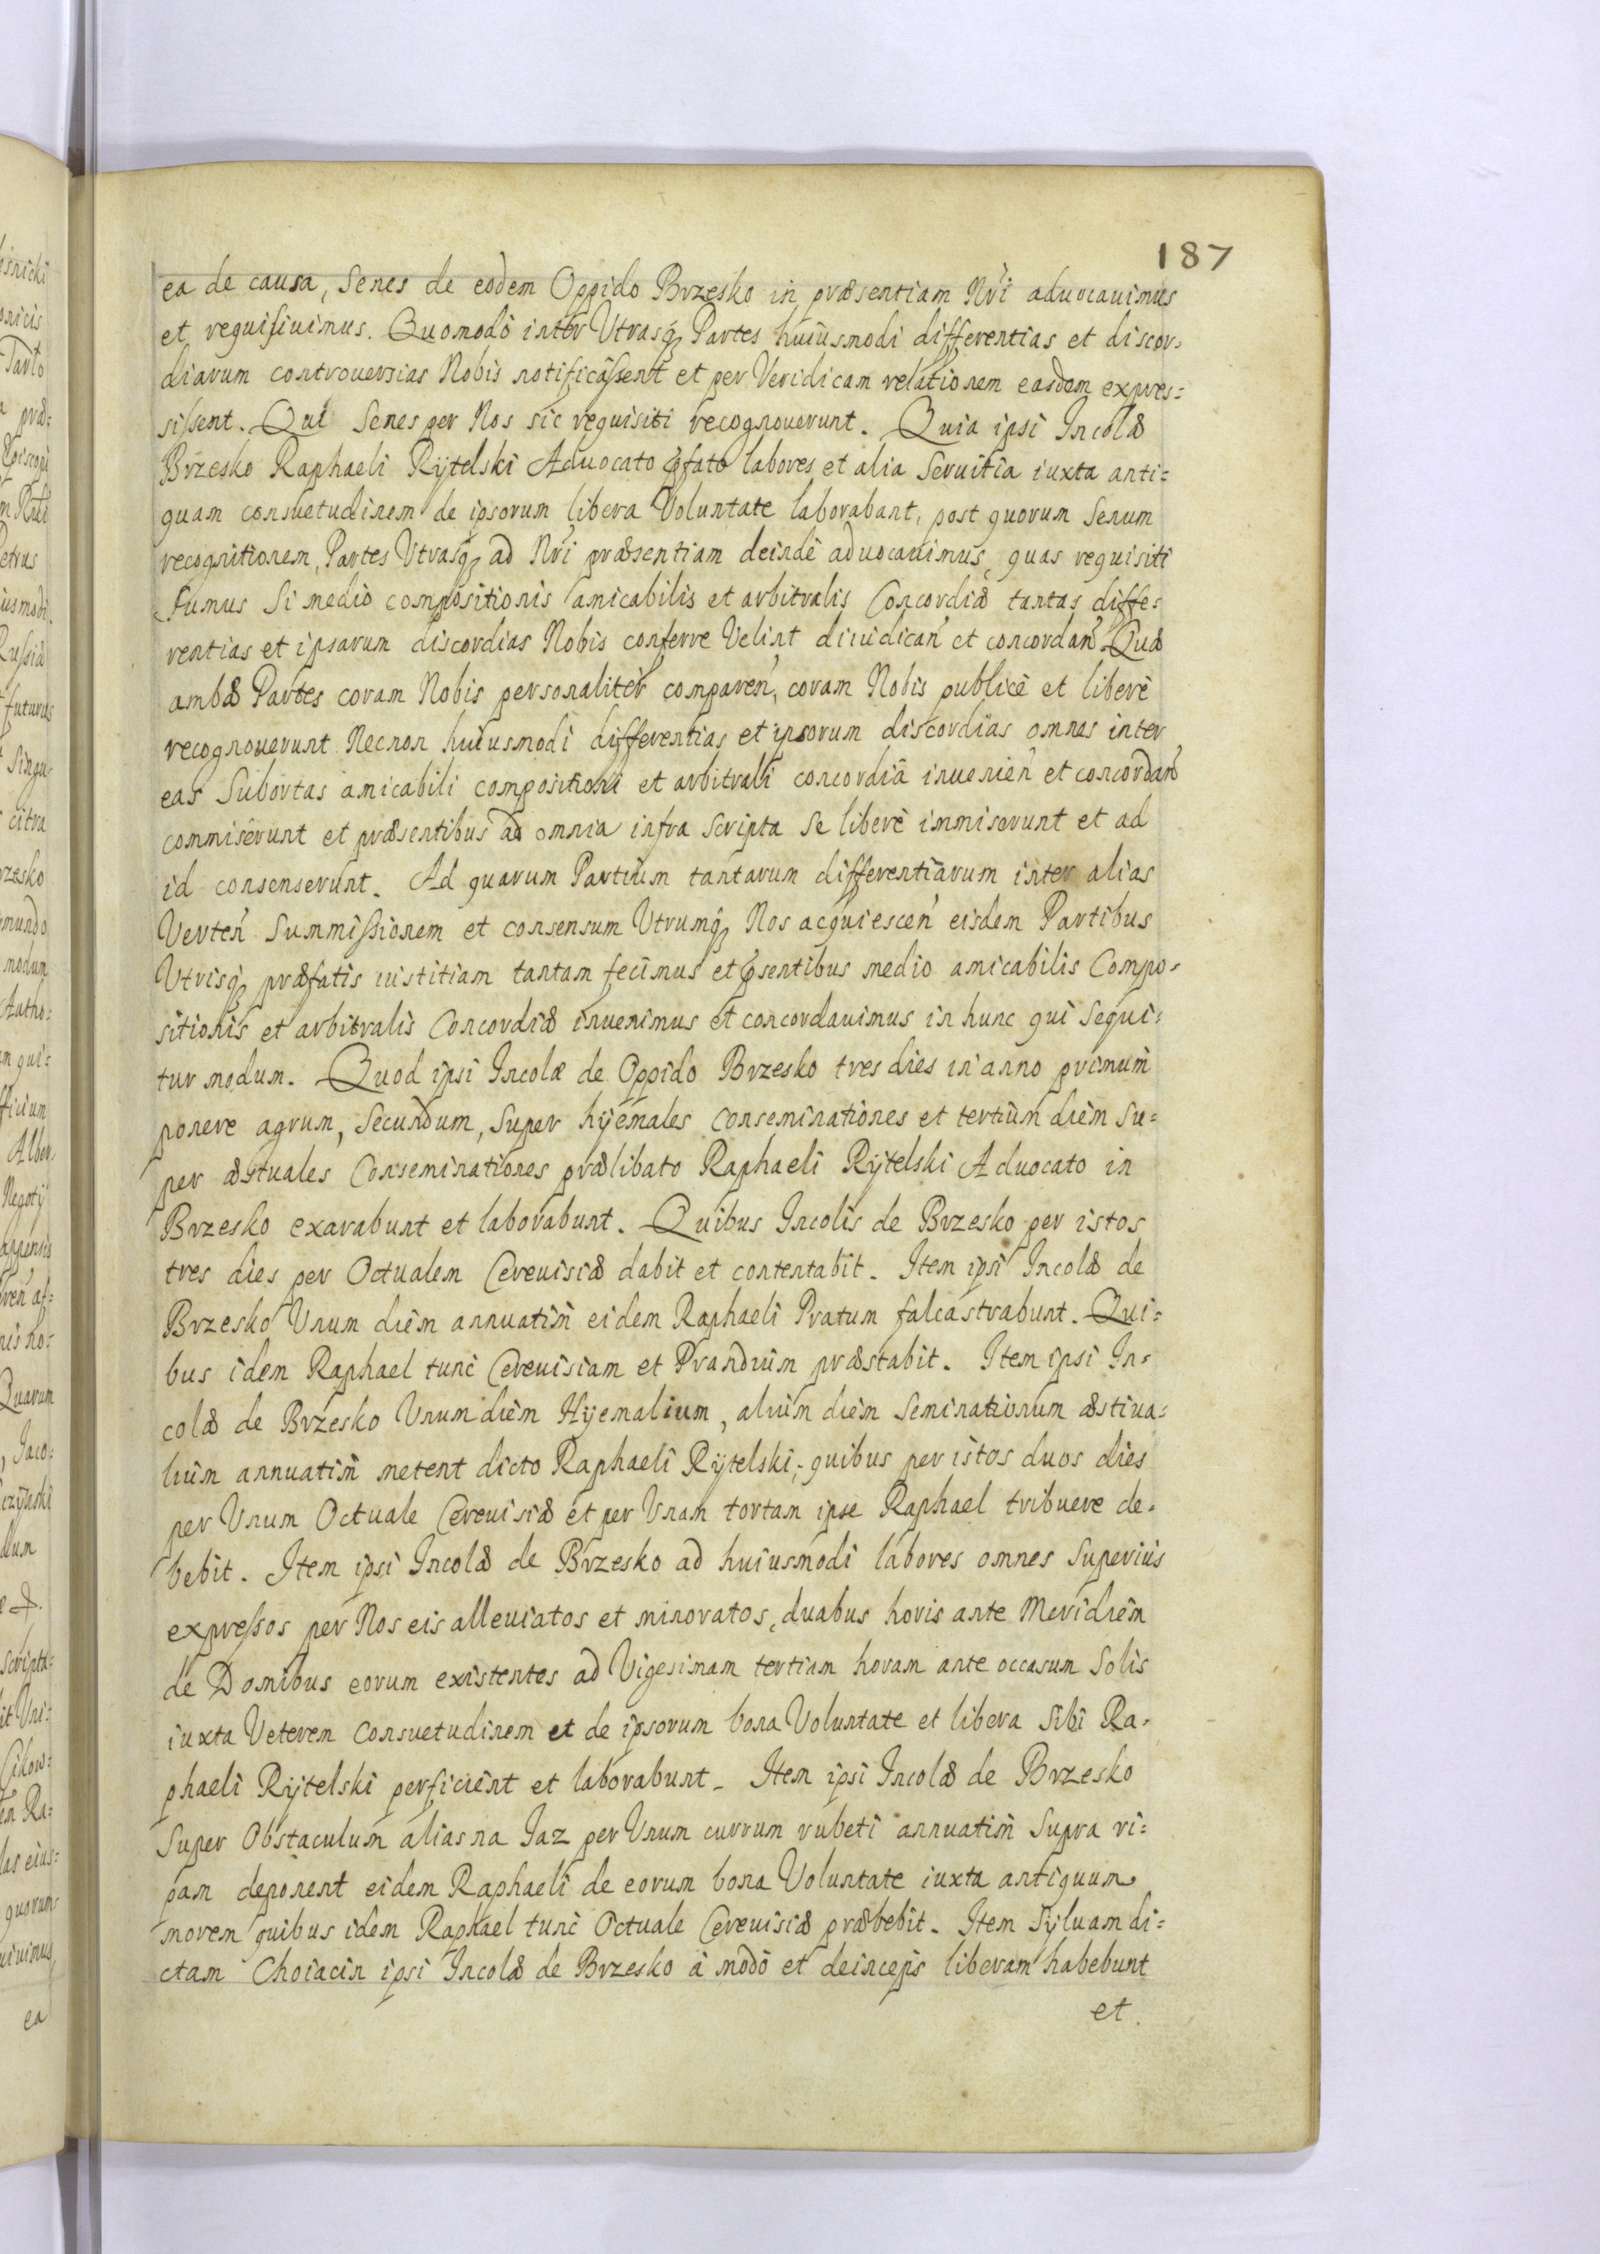 187
ea de causa, Senes de eodem Oppido Brzesko in præsentiam Nr̃i aduocauimus
et requisiuimus. Quomodò inter Utrasq̨ Partes huiusmodi differentias et discor-
diarum controuersias Nobis notificassent et per Veridicam relationem easdem expres=
sissent. Qui Senes per Nos sic requisiti recognouerunt. Quia ipsi Incolæ
Brzesko Raphaeli Rÿtelski Aduocato p̃fato labores et alia Seruitia iuxta anti=
quam consuetudinem de ipsorum libera Voluntate laborabant, post quorum Senum
recognitionem, Partes Utrasq̨ ad Nr̃i præsentiam deindè aduocauimus, quas requisiti
Sumus Si mediò compositionis amicabilis et arbitralis Concordiæ tantas diffe=
rentias et ipsarum discordias Nobis conferre Velint diiudican̕ et concordan̕. Quæ
ambæ Partes coram Nobis personalitèr comparen̕, coram Nobis publicè et liberè
recognouerunt Necnon huiusmodi differentias et ipsorum discordias omnes inter
eas Subortas amicabili compositioni et arbitrali concordiâ inuenien̕ et concordan̕
commiserunt et præsentibus ad omnia infra scripta se liberè immiserunt et ad
id consenserunt. Ad quarum Partium tantarum differentiarum inter alias
Verten̕ Summissionem et consensum Utrumq̨ Nos acquiescen̕ eisdem Partibus
Utrisq̨ præfatis iustitiam tantam fecimus et p̃sentibus medio amicabilis Compo=
sitionis et arbitralis Concordiæ inuenimus et concordauimus in hunc qui Sequi=
tur modum. Quod ipsi Incolæ de Oppido Brzesko tres dies in anno primum
ponere agrum, Secundum, Super hÿemales conseminationes et tertium diem Su=
per æstuales Conseminationes prælibato Raphaeli Rÿtelski Aduocato in
Brzesko exarabunt et laborabunt. Quibus Incolis de Brzesko per istos
tres dies per Octualem Cereuisiæ dabit et contentabit. Item ipsi Incolæ de
Brzesko Unum diem annuatim̃ eidem Raphaeli Pratum falcastrabunt. Qui=
bus idem Raphael tunc Cereuisiam et Prandium præstabit. Item ipsi In=
colæ de Brzesko Unum diem Hÿemalium, alium diem Seminationum æstiua=
lium annuatim̃ metent dicto Raphaeli Rÿtelski; quibus per istos duos dies
per Unum Octuale Cereuisiæ et per Unam tortam ipse Raphael tribuere de=
bebit. Item ipsi Incolæ de Brzesko ad huiusmodi labores omnes Superiùs
expressos per Nos eis alleuiatos et minoratos, duabus horis ante Meridiem
de Domibus eorum existentes ad Vigesimam tertiam horam ante occasum Solis
iuxta Veterem consuetudinem et de ipsorum bona Voluntate et libera Sibi Ra=
phaeli Rÿtelski perficient et laborabunt. Item ipsi Incolæ de Brzesko
Super Obstaculum alias na Jaz per Unum currum rubeti annuatim̃ Supra ri=
pam deponent eidem Raphaeli de eorum bona Voluntate iuxta antiquum
morem quibus idem Raphael tunc Octuale Cereuisiæ præbebit. Item Sÿluam di=
ctam Choiacin ipsi Incolæ de Brzesko à modò et deinceps liberam habebunt
et